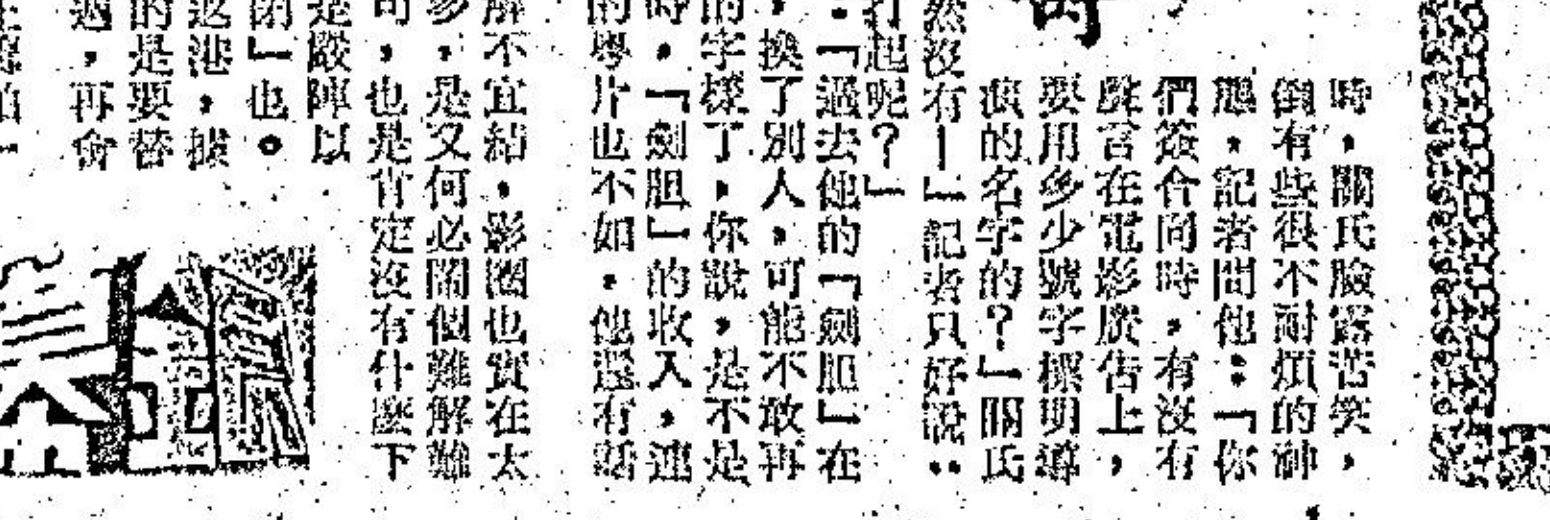 時，關氏臉露苦笑，
倒有些很不耐煩的神
態，記者問他：「你
們簽合同時，有沒有
聲言在電影廣告上，
要用多少號字標明導
演的名字的？」關氏
然沒有—」記者只好說：
打起呢？」
：「過去他的「劍胆」在
，換了別人，可能不敢再
的字樣了，你說，是不是
時，「劍胆」的收入，連
的粵片也不如。他還有話
解不宜結，影圈也實在太
多，是又何必鬧個難解難
可，也是肯定沒有什麼下
是嚴陣以
閉」也。
返港，據
的是要替
過，再會